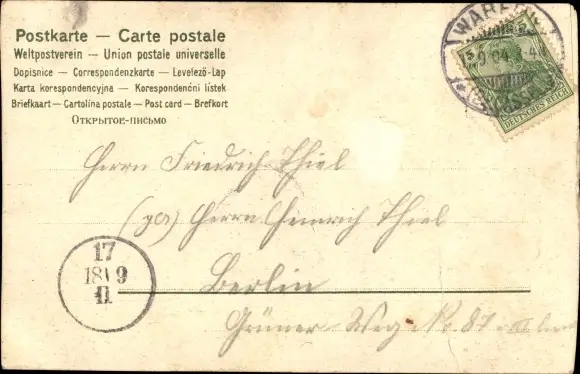 Postkarte — Carte postale
Weltpostverein — Union postale universelle
Dopisnice — Correspondenzkarte — Levelező-Lap
Karta korespondencyjna — Korespondenční listek
Briefkaart — Cartolina postale — Post card — Brefkort
Открытое-письмо
WAREN
DEUTSCHES REICH
Herrn Friedrich Thiel
(per) Herrn Heinrich Thiel
17
18 9
II
Berlin
Grüner Weg No 87 III